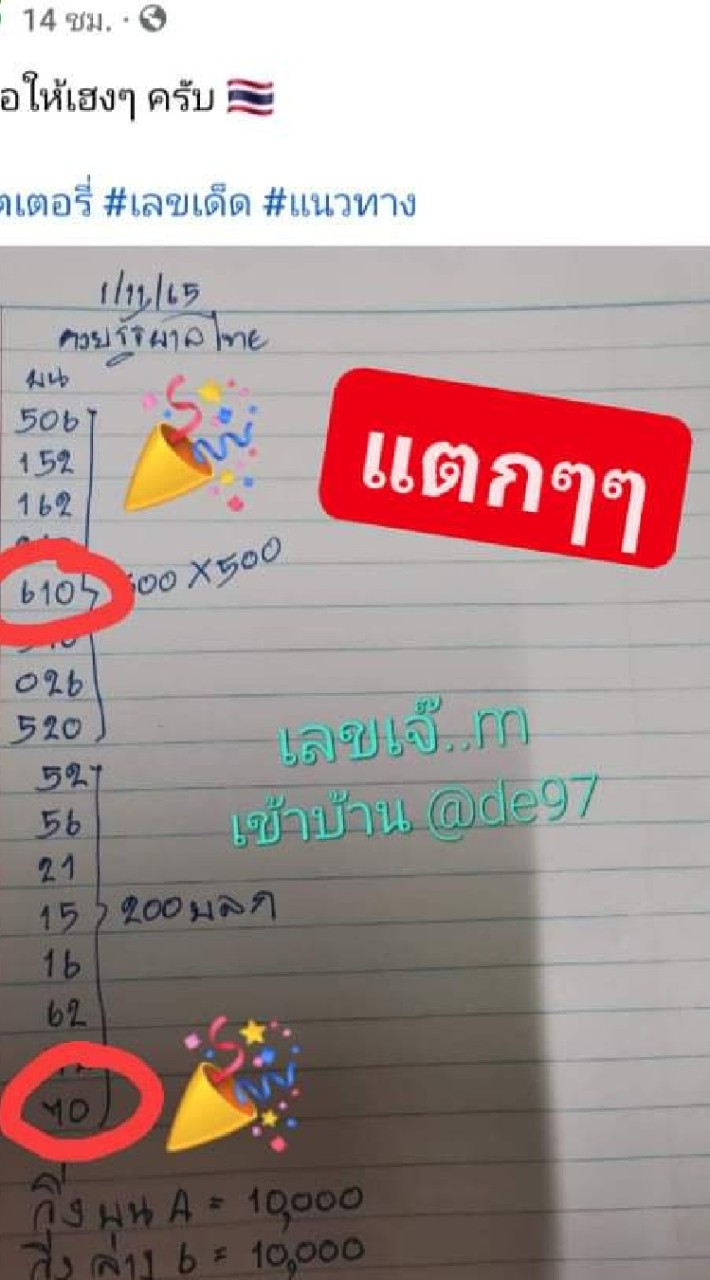 14 ชม.
อให้เฮงๆ ครับ
ตเตอรี่ #เลขเด็ด #แนวทาง
1/11/65
หวยรัฐบาลไทย
บน
506
152
162
แตกๆๆ
610 500 X 500
026
520
เลขเจ๊..m
เข้าบ้าน @de97
52
56
21
15 200 บลก
16
62
10
วิ่ง บน A = 10,000
วิ่ง ล่าง 6 = 10,000